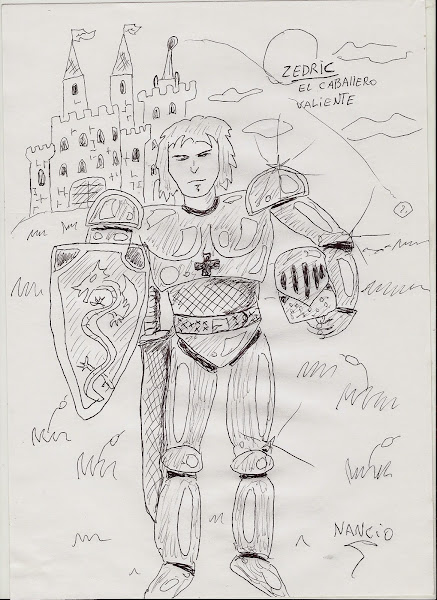 ZEDRIC
EL CABALLERO
VALIENTE
NANCIO